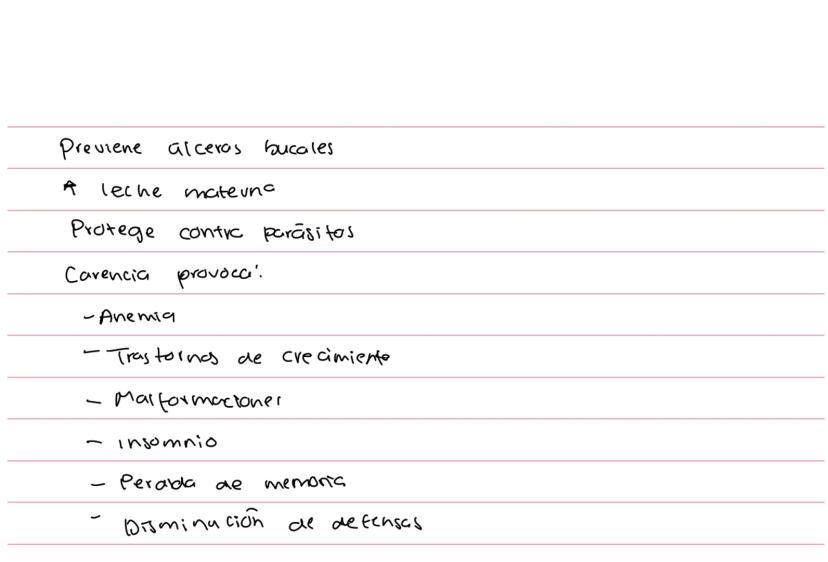 Previene úlceras bucales
↑ leche materna
Protege contra parásitos
Carencia provoca:
- Anemia
- Trastornos de crecimiento
- Malformaciones
- insomnio
- Perdida de memoria
- Disminución de defensas